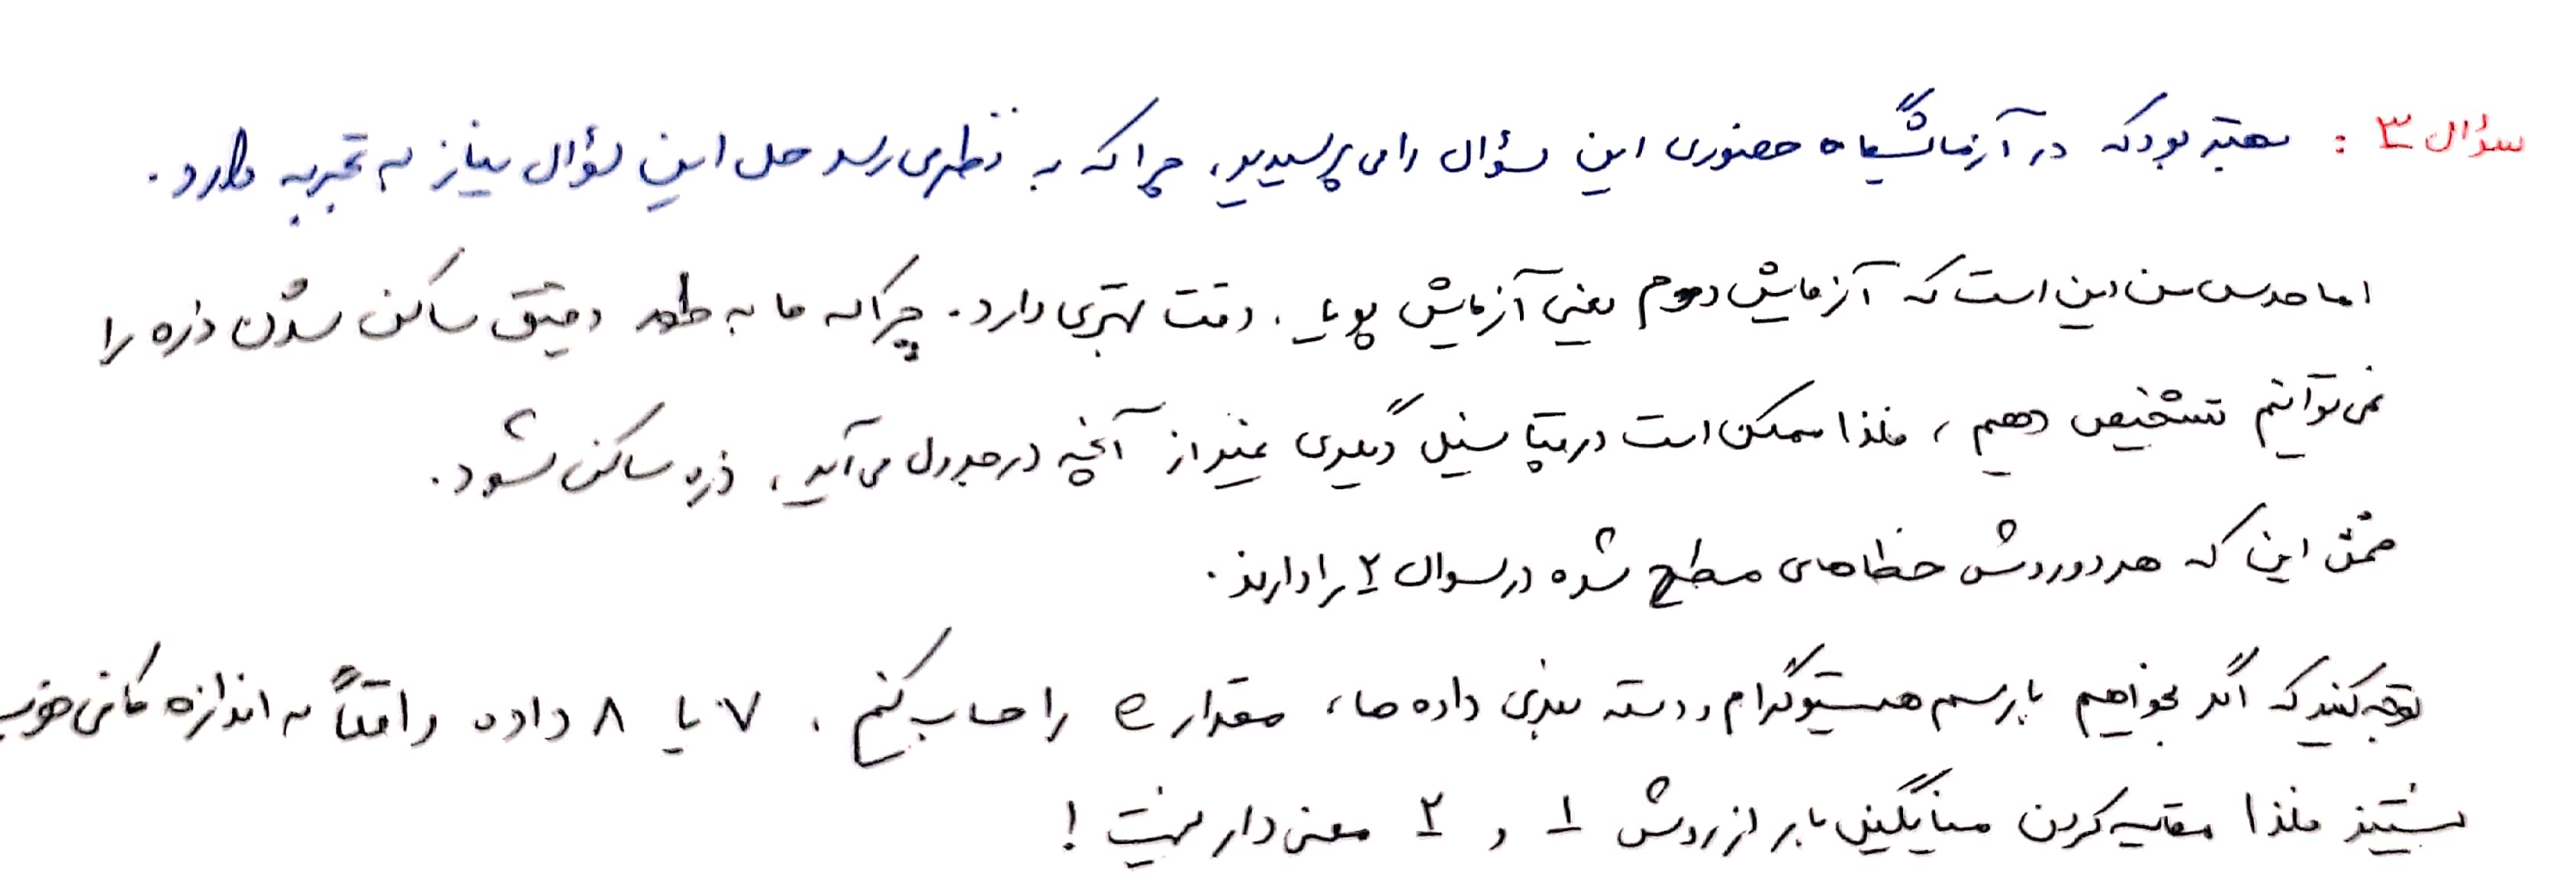 سؤال ۳ : بهتر بود که در آزمایشگاه حضوری این سؤال را می پرسیدید، چرا که به نظر می رسد حل این سؤال نیاز به تجربه دارد.
اما حدس من این است که آزمایش دوم یعنی آزمایش پویا، دقت بهتری دارد. چرا که ما به طور دقیق ساکن شدن ذره را
نمی توانیم تشخیص دهیم، فلذا ممکن است در پتانسیل دیگری غیر از آنچه در جدول می آید، ذره ساکن شود.
ضمن این که هر دو روش خطاهای مطرح شده در سوال ۲ را دارند.
توجه کنید که اگر بخواهیم با رسم هیستوگرام و دسته بندی داده ها، مقدار e را حساب کنیم، ۷ یا ۸ داده واقعاً به اندازه کافی خوب
نیستند فلذا مقایسه کردن میانگین بار از روش ۱ و ۲ معنی دار نیست!